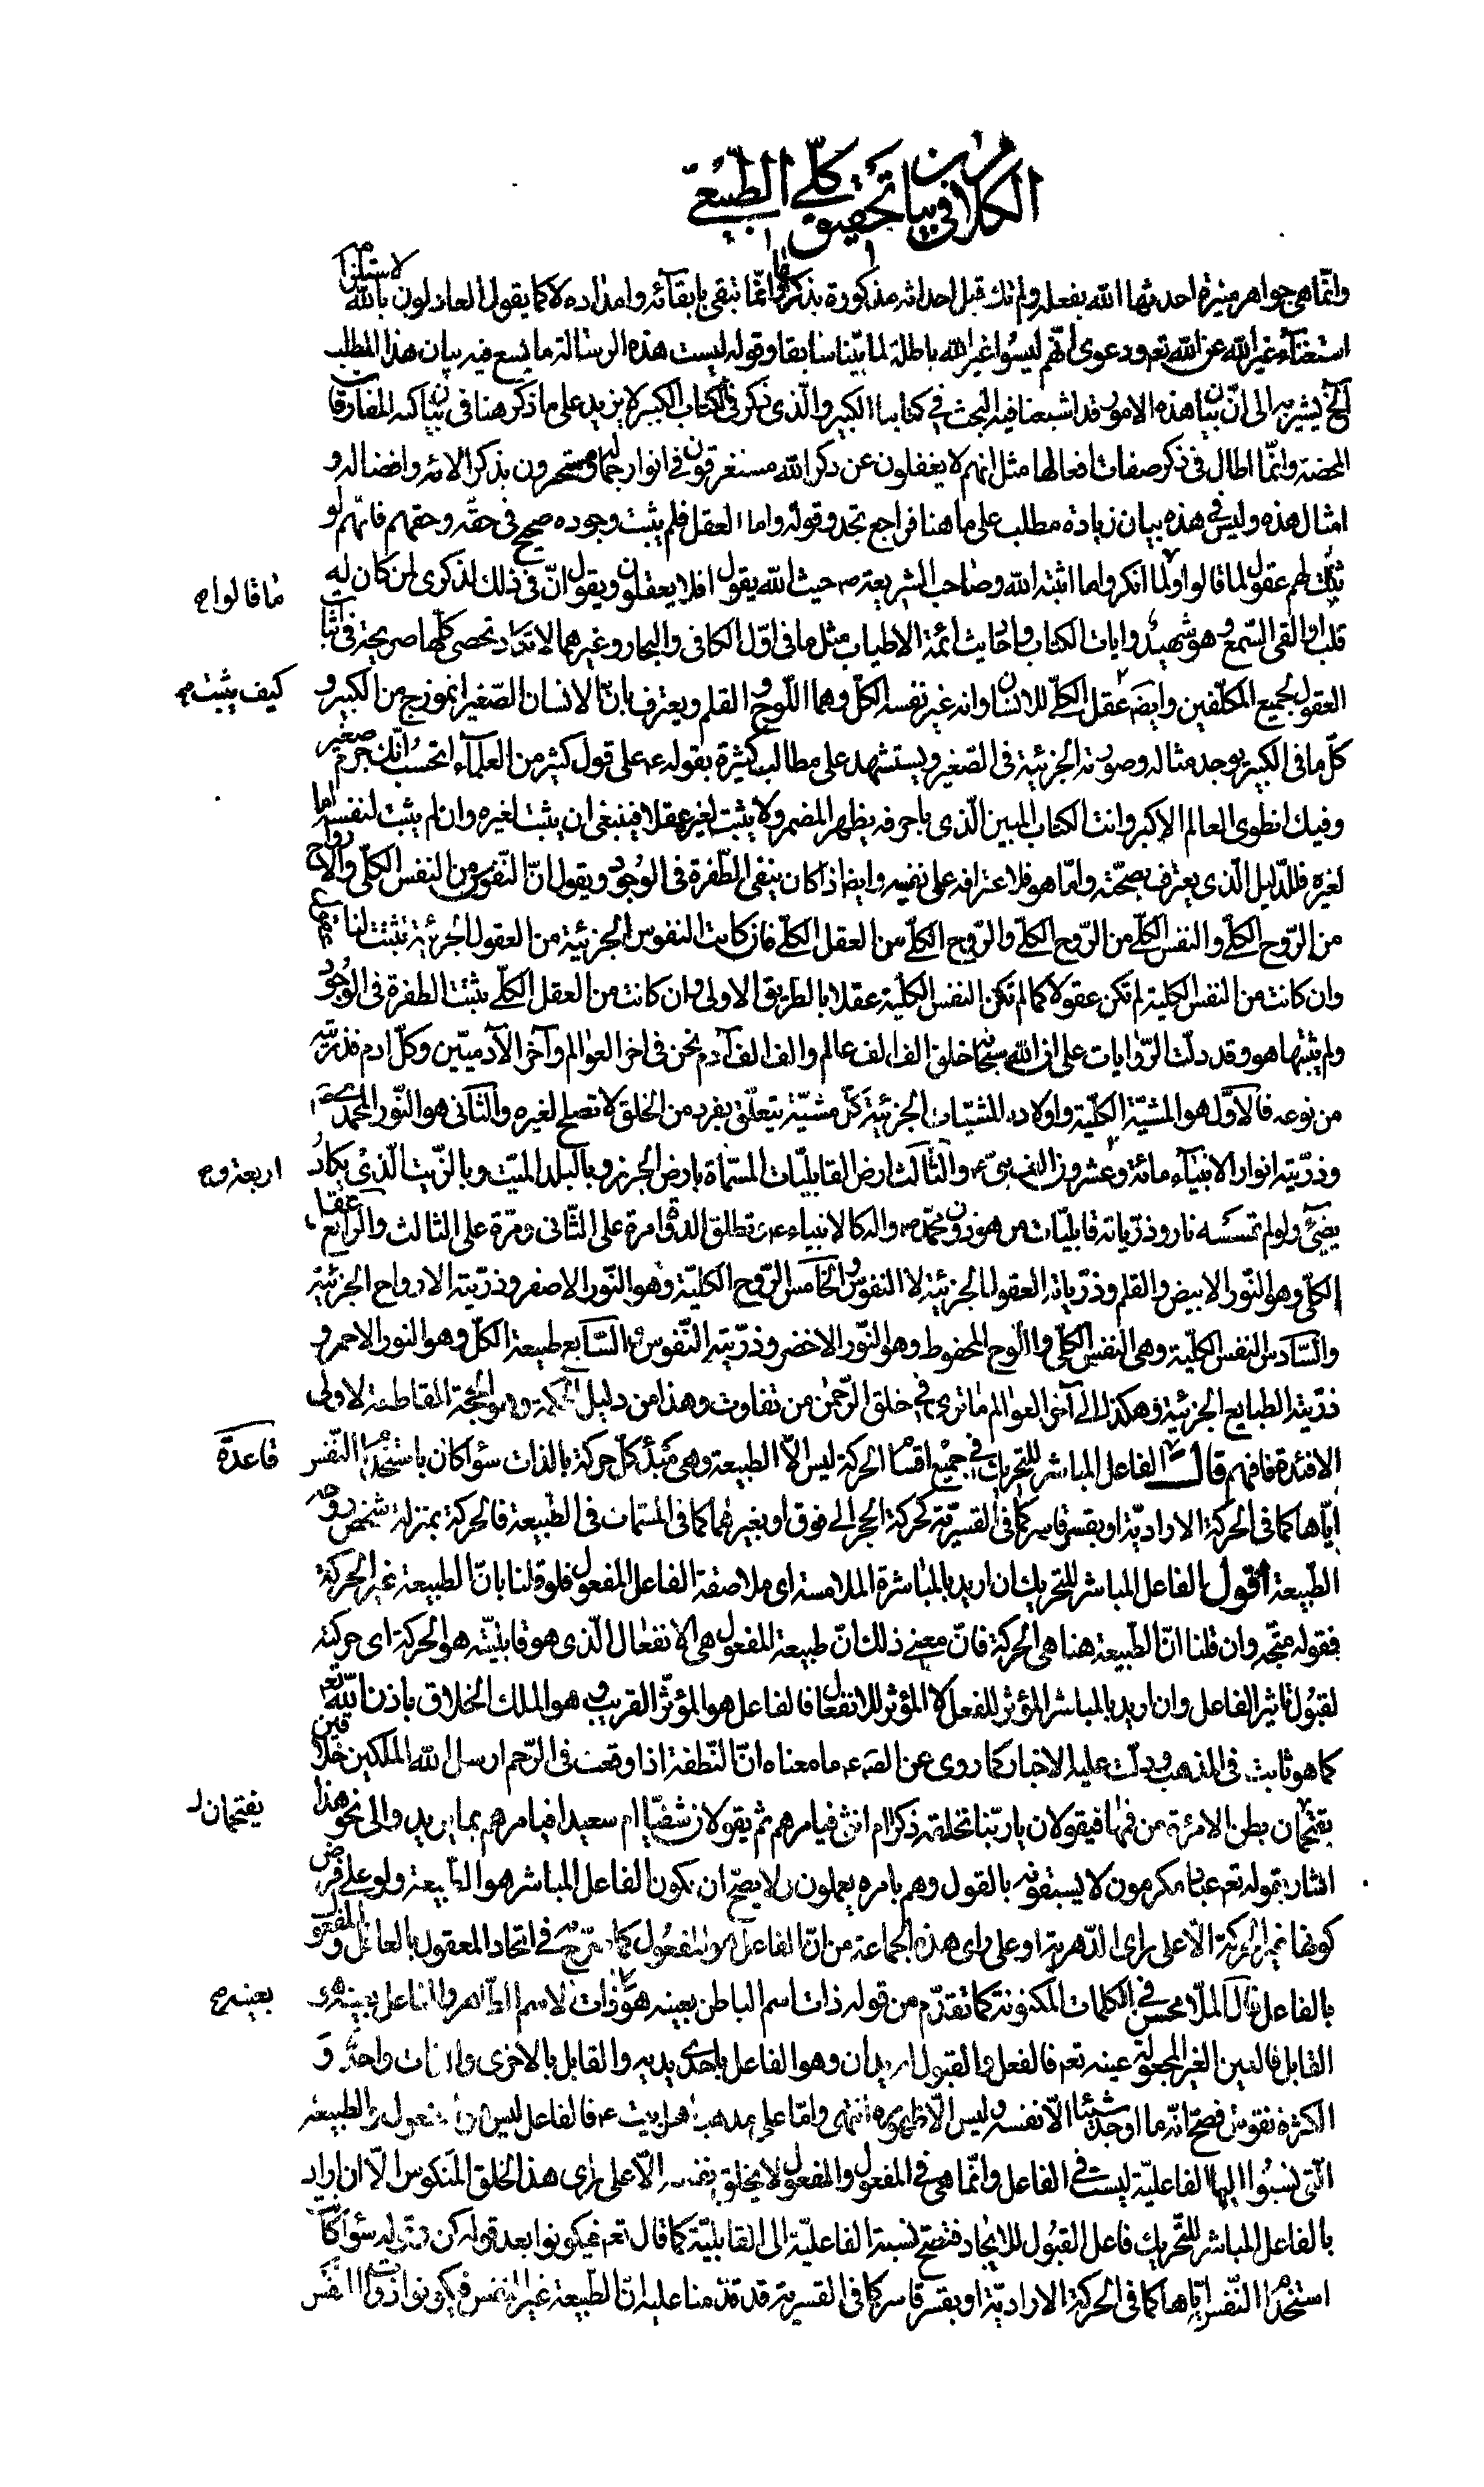 الكلام في بيان تحقيق كلّي الطبيعي
وانّما هي جواهر منيرة احدثها الله بفعله ولم تك قبل احداثه مذكورة بذكر وانّما تبقى بابقائه وامداده لا كما يقول العادلون بالله لاستلزام
استغناء غير الله عن الله تعم ودعوى انّهم ليسوا غير الله باطلة لما بيّنا سابقا وقوله ليست هذه الرسالة ما يسع فيه بيان هذا المطلب
الخ يشير به الى انّ بيان هذه الامور قد اشبعنا فيه البحث في كتابنا الكبير والّذى ذكر في الكتاب الكبير لا يزيد على ما ذكر هنا في بيان كنه المفارقات
المحضة وانّما اطال في ذكر صفات افعالها مثل انهم لا يغفلون عن ذكر الله مستغرقون في انوار جماله ومستحرون بذكر الائه وافضاله و
امثال هذه وليس في هذه بيان زيادة مطلب على ما هنا فراجع تجد وقوله واما العقل فلم يثبت وجوده صحيح في حقه وحقهم فانّهم لو
ثبت لهم عقول لما قالوا ولما انكروا ما اثبته الله وصاحب الشريعة ص حيث الله يقول افلا يعقلون ويقول انّ في ذلك لذكرى لمن كان له
ما قالوا ح
قلب او القى السّمع وهو شهيد وايات الكتاب واحاديث ائمّة الاطياب مثل ما في اوّل الكافى والبحار وغيرهما لا تكاد تحصى كلّها صريحة في اثبات
العقول لجميع المكلّفين وايضا عقل الكلّ للانسان وانه غير نفسه الكلّ وهما اللّوح والقلم ويعترف بانّ الانسان الصّغير انموزج من الكبير و
كيف يثبت ح
كلّ ما في الكبير يوجد مثاله وصورته الجزئية في الصّغير ويستشهد على مطالب كثيرة بقوله ع على قول كثير من العلماء اتحسب انّك جرم صغير
وفيك انطوى العالم الاكبر وانت الكتاب المبين الّذى باحرفه يظهر المضمر ولا يثبت لغيره عقلا فينبغى ان يثبت لغيره وان لم يثبت لنفسه اما
لغيره فللدّليل الّذى يعترف بصحّته وامّا هو فلاعترافه على نفسه وايضا اذا كان ينفى الطّفرة في الوجود ويقول انّ النّفوس من النفس الكلّى والارواح
من الرّوح الكلّى والنفس الكلّى من الرّوح الكلّى والرّوح الكلّى من العقل الكلّى فان كانت النفوس الجزئية من العقول الجزئية تثبت لنا
وان كانت من النفس الكلية لم تكن عقولا كما لم تكن النفس الكليّة عقلا بالطريق الاولى وان كانت من العقل الكلّى يثبت الطفرة في الوجود
ولم يثبتها هو وقد دلّت الرّوايات على ان الله سبحانه خلق الف الف عالم والف الف آدم نحن في اخر العوالم وآخر الآدميّين وكلّ ادم فذريته
من نوعه فالاوّل هو المشيّة الكليّة واولاده المشيّات الجزئية كلّ مشيّة يتعلّق بفرد من الخلق لا تصلح لغيره والثانى هو النّور المحمدى ص
وذرّيته انوار الانبياء مائة وعشرون الف نبىّ ع والثّالث ارض القابليّات المسمّاة بارض الجرز وبالبلد الميّت وبالزّيت الّذى يكاد
اربعة و ح
يضىء ولو لم تمسسه نار وذرّياته قابليّات من هو دون محمّد ص واله كالانبياء ع تطلق الدواة مرة على الثّانى ومرّة على الثالث والرّابع عقل
الكلّ وهو النّور الابيض والقلم وذرّياته العقول الجزئية لا النفوس والخامس الرّوح الكليّة وهو النّور الاصفر وذرّيته الارواح الجزئية
والسّادس النفس الكليّة وهى النفس الكلّى واللّوح المحفوظ وهو النّور الاخضر وذرّيته النّفوس السّابع طبيعة الكلّ وهو النور الاحمر و
ذرّيته الطبايع الجزئية وهكذا الى آخر العوالم ما ترى في خلق الرّحمن من تفاوت وهذا من دليل الحكمة وهو الحجّة القاطعة لاولى
الافئدة فافهم قال الفاعل المباشر للتحريك في جميع اقسام الحركة ليس الّا الطبيعة وهى مبدأ كلّ حركة بالذات سواء كان باستخدام النّفس
قاعدة
ايّاها كما في الحركة الاراديّة او بقسر قاسر كما في القسريّة كحركة الحجر الى فوق او بغيرهما كما في المسمّات في الطّبيعة فالحركة بمنزلة شخص روحه
الطّبيعة اقول الفاعل المباشر للتحريك ان اريد بالمباشرة الملامسة اى ملاصقة الفاعل المفعول فلو قلنا بانّ الطبيعة غير الحركة
فقوله متّجه وان قلنا انّ الطّبيعة هنا هى الحركة فانّ معنى ذلك انّ طبيعة المفعول هى الانفعال الّذى هو قابليّته هو الحركة اى حركته
لقبول تاثير الفاعل وان اريد بالمباشر المؤثر للفعل لا المؤثر للانفعال فالفاعل هو المؤثّر القريب وهو الملك الخلاق باذن الله تعم
كما هو ثابت في المذهب ودلّت عليه الاخبار كما روى عن الصّ ع ما معناه انّ النّطفة اذا وقعت في الرّحم ارسل الله الملكين خلاقين
يقتحمان بطن الامرئة من فمها فيقولان يا ربّنا نخلقه ذكرا ام انثى فيامرهم ثم يقولان شقيّا ام سعيدا فيامرهم بما يريد والى نحو هذا
يفتحمان ل
اشار بقوله تعم عباد مكرمون لا يسبقونه بالقول وهم بامره يعملون ولا يصحّ ان يكون الفاعل المباشر هو الطّبيعة ولو على فرض
كونها غير الحركة الّا على راى الدّهرية او على راى هذه الجماعة من انّ الفاعل هو المفعول كما صرّح به في اتحاد المعقول بالعاقل والمفعول
بالفاعل قال الملّا محسن في الكلمات المكنونة كما تقدّم من قوله ذات اسم الباطن بعينه هو ذات الاسم الظاهر والفاعل بعينه هو
بعينه ح
القابل فالعين الغير المجعولة عينه تعم فالفعل والقبول له يدان وهو الفاعل باحدى يديه والقابل بالاخرى والذات واحدة و
الكثرة نقوش فصحّ انّه ما اوجد شيئا الّا نفسه وليس الّا ظهوره انتهى وامّا على مذهب اهل بيت ع فالفاعل ليس هو المفعول والطبيعة
الّتى نسبوا اليها الفاعليّة ليست في الفاعل وانّما هى في المفعول والمفعول لا يخلق نفسه الّا على راى هذا الخلق المنكوس الّا ان اراد
بالفاعل المباشر للتّحريك فاعل القبول للايجاد فتصحّ نسبة الفاعليّة الى القابليّة كما قال تعم فيكونوا بعد قوله كن سواء كانت
استخدام النّفس ايّاها كما في الحركة الاراديّة او بقسر قاسر كما في القسرية قد قدّمنا عليه انّ الطّبيعة غير النفس النّفس